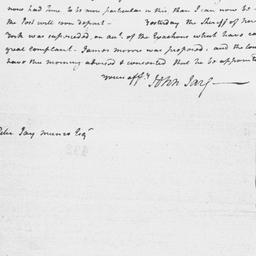 now had Time to be more particular in this than I can now be -
the Post will soon depart - Yesterday the Sheriff of New
York was superseded, on acct. of the Exactions which have
qual complaint. James Morris was proposed, and the
have this morning advised & consented that he be
yours afftly John Jay
Peter Jay Munro Esqr